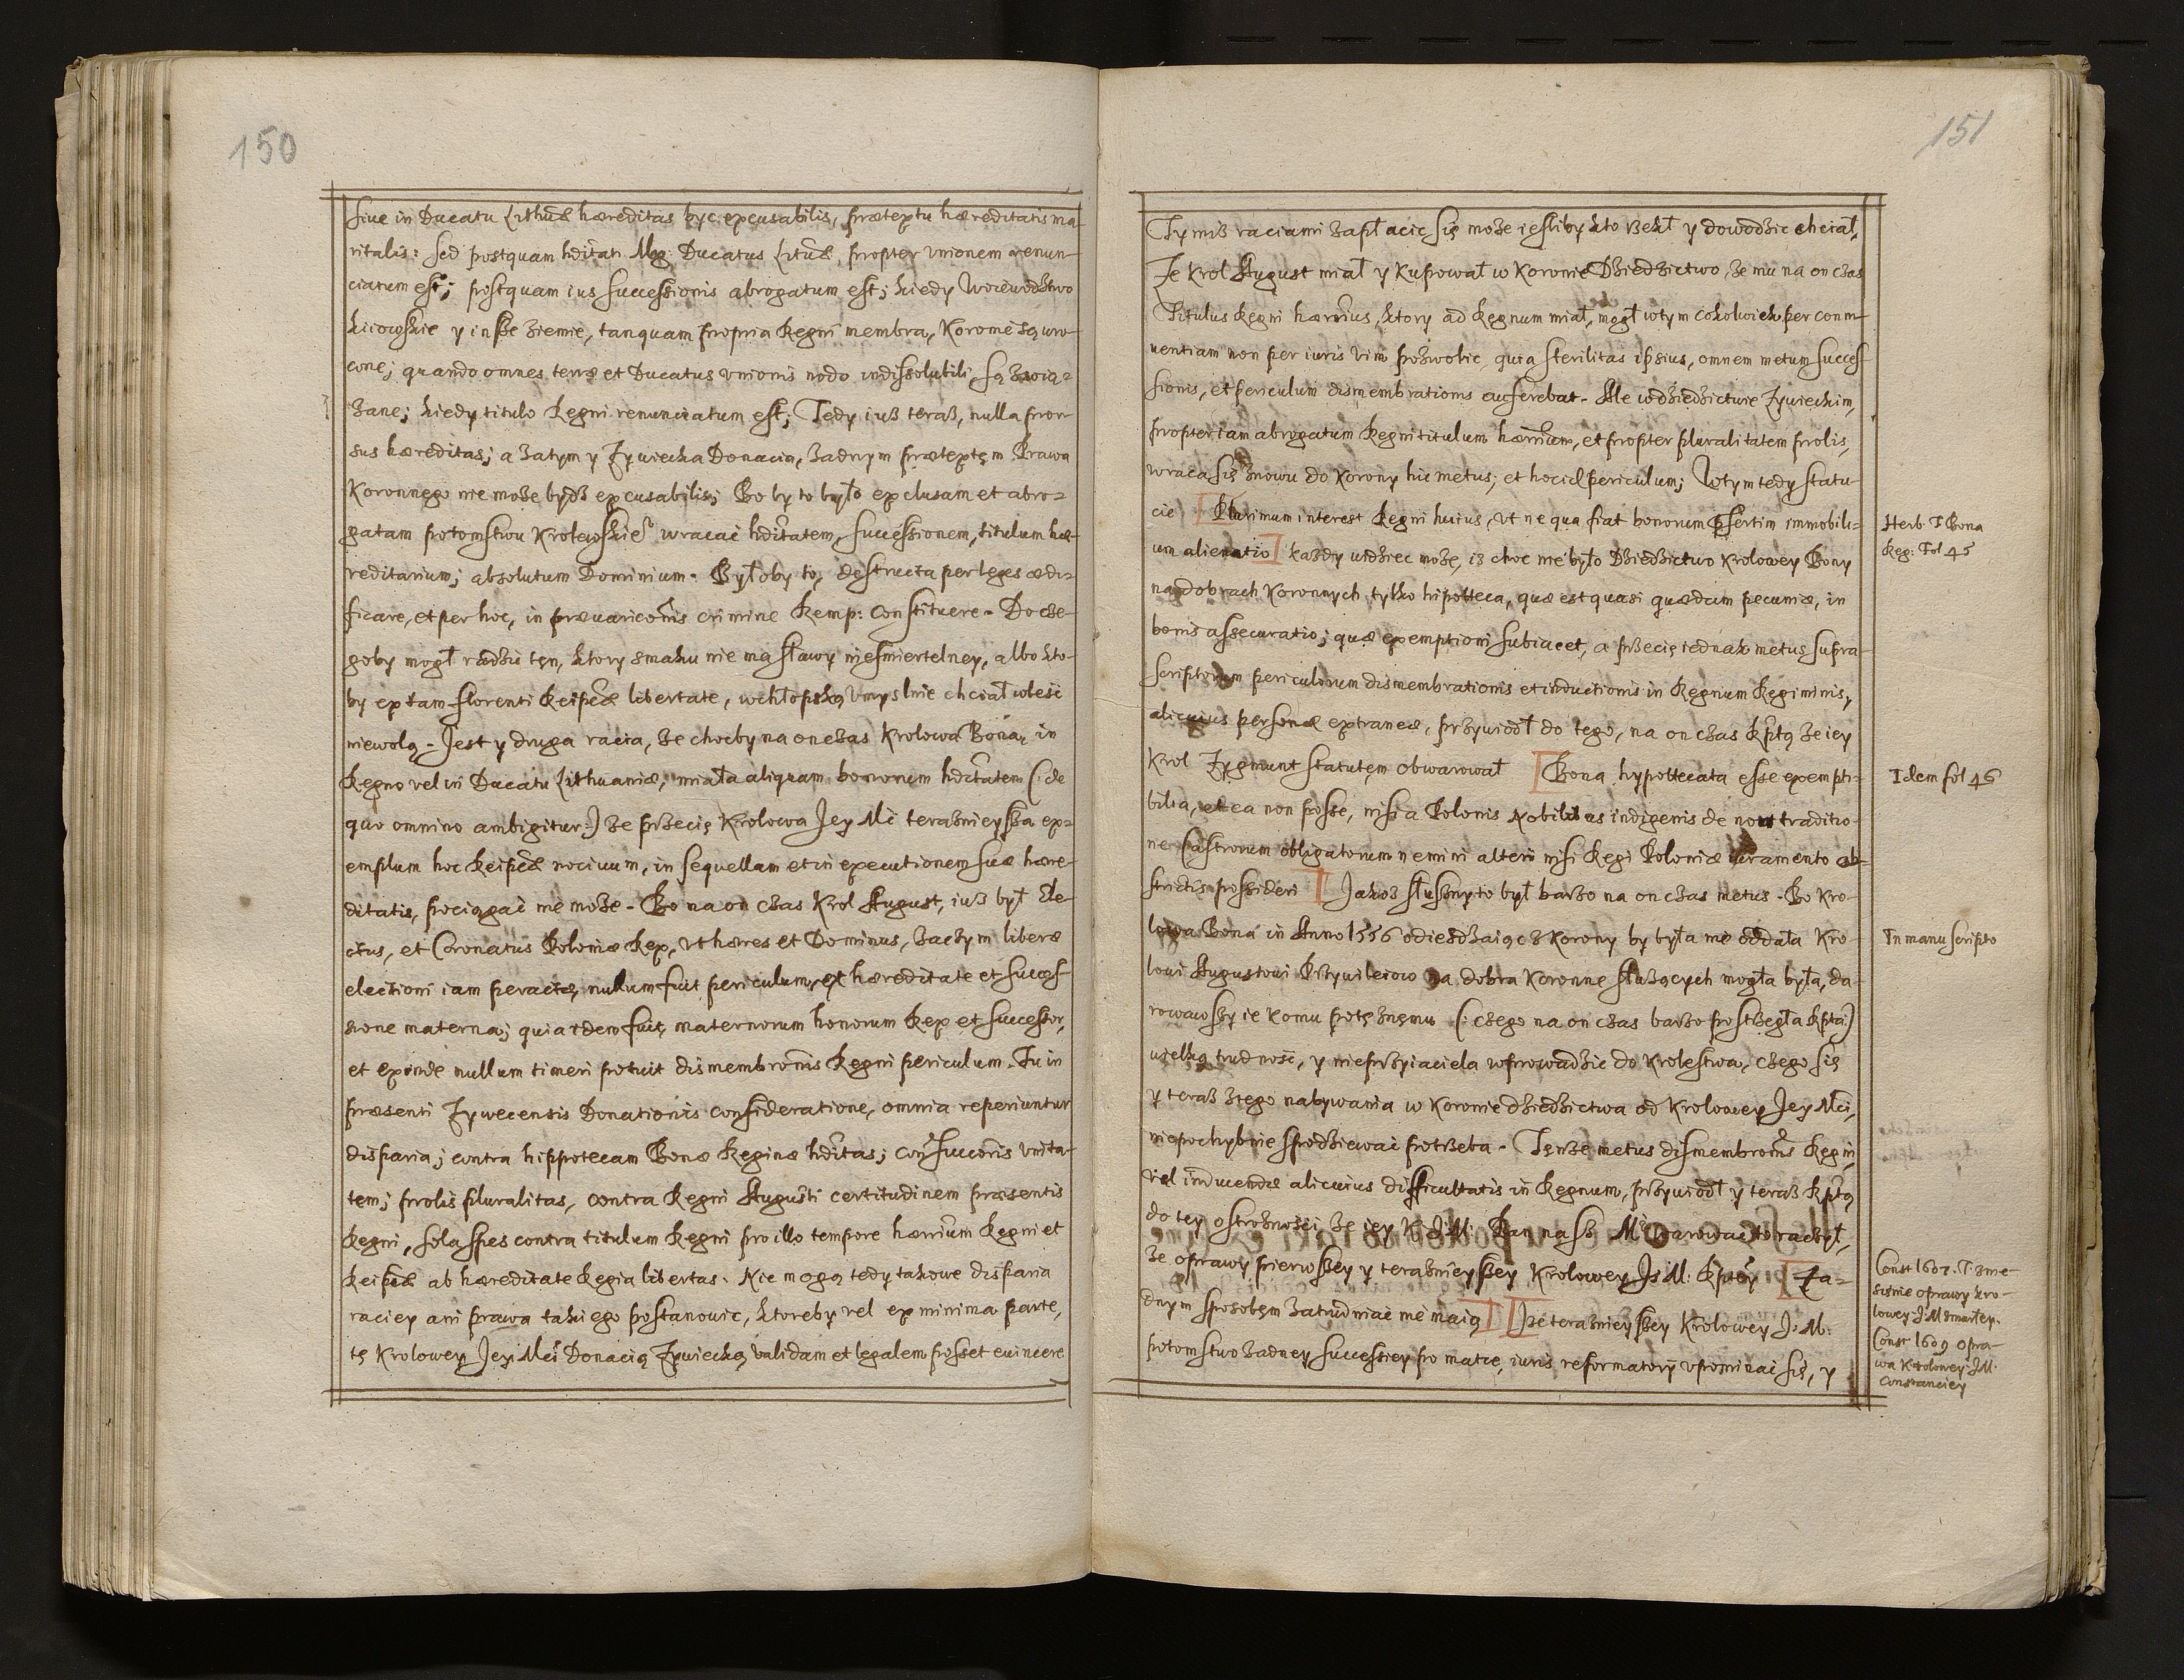 150
siue in Ducatu Lithuæ hæreditas byc excusabilis, prætextu hæreditatis ma-
ritalis: sed postquam hditati Mag: Ducatus Lituæ, propter vnionem renun-
ciatum est; postquam ius successionis abrogatum est; kiedy Woiewodztwo
kiiowskie y insze ziemie, tanquam propria Regni membra, Koronie są wro-
cone; quando omnes terræ et Ducatus vnionis nodo indissolubili są zwią-
zane; kiedy titulo Regni renunciatum est; Tedy iuż teraz, nulla pror-
sus hæreditas; a zatym y Zywiecka Donacia, zadnym prætextęm Prawa
Koronnego nie może bydz excusabilis; Bo by to było exclusam et abro-
gatam potomstwu Krolewskie° wracać hditatem, successionem, titulum hæ-
reditarium; absolutum Dominium. Byłoby to, destructa per leges ædi-
ficare, et per hoc, in præuaricōnis crimine Remp: constituere. Do cze-
goby mogł radzić tęn, ktory smaku nie ma sławy nieśmiertelney, albo kto-
by ex tam florenti Reipcæ libertate, w chłopską vmyslnie chciał wleść
niewolą. Jest y druga racia, że chocby na onczas Krolowa Bona, in
Regno vel in Ducatu Lithuaniæ, miała aliquam bonorum hditatem (: de
quo omnino ambigitur:) że przecię Krolowa Jey Mć teraznieysza ex-
emplum hoc Reipcæ nociuum, in sequellam et in executionem suæ hære-
ditatis, pociągać nie może. Bo na on czas Krol August, iuż był Ele-
ctus, et Coronatus Poloniæ Rex, vt hæres et Dominus, zaczym liberæ
electioni iam peractæ, nullum fuit periculum, ex hæreditate et succes-
sione materna; quia idem fuit maternorum bonorum Rex et successor,
et exinde nullum timeri potuit dismembrōnis Regni periculum. Tu in
præsenti Zywecensis Donationis consideratione, omnia reperiuntur
disparia; contra hippotecam Bonæ Reginæ hditas; con successoris vnita-
tem; prolis pluralitas, contra Regni Augusti certitudinem præsentis
Regni, sola spes contra titulum Regni pro illo tempore hærium Regni et
Reipcæ ab hæreditate Regia libertas. Nie mogą tedy takowe disparia
raciey ani prawa takiego postanowic, ktoreby vel ex minima parte,
tę Krolowey Jey Mci Donacią Zywiecką validam et legalem posset euincere
151
Tymiż raciami zapłacic się może iesliby kto rzekł y dowodzic chciał,
Ze Krol August miał y kupował w Koronie Dziedzictwo, że mu na on czas
Titulus Regni hærius, ktory ad Regnum miał, mogł wtym cokolwiek per conni-
uentiam non per iuris vim pozwolic, quia sterilitas ipsius, omnem metum succes-
sionis, et periculum dismembrationis auferebat. Ale w dziedzictwie Zywieckim,
propter iam abrogatum Regni titulum hærium, et propter pluralitatem prolis,
wraca się znowu do Korony hic metus; et hocce periculum; Wtym tedy statu-
cie [Plurimum interest Regni huius, vt ne qua fiat bonorum psertim immobili-
um alienatio] każdy widziec może, iż choc nie było Dziedzictwo Krolowey Bony
na dobrach Koronnych tylko hipotteca, quæ est quasi quædam pecuniæ, in
bonis assecuratio; quæ exemptioni subiacet, a przecię iednak metus supra-
scriptorum periculorum dismembrationis et inductionis in Regnum Regiminis,
alicuius personæ extraneæ, przywiodł do tego, na on czas Rptą że iey
Krol Zygmunt statutęm obwarował [Bona hypottecata esse exempti-
bilia, et ea non posse, nisi a Polonis Nobilibus indigenis de non traditio-
ne Castrorum obligatorum nemini alteri nisi Regi Poloniæ iuramento ob-
strictis possideri] Jakoż słuszny to był barzo na on czas metus. Bo Kro-
lowa Bona in Anno 1556 odiezdzaiąc z Korony by była nie oddała Kro-
lowi Augustowi Przywileiow na dobra Koronne służących mogła była, da-
rowawszy ie komu potężnęmu (: czego na on czas barzo postrzegła Rpta:)
wielką trudność, y nieprzyiaciela wprowadzic do Krolestwa, czego się
y teraz ztego nabywania w Koronie dziedzictwa od Krolowey Jey Mci,
niepochybnie spodziewać potrzeba. Tęnże metus dismembrōnis Regni,
vel inducendæ alicuius difficultatis in Regnum, przywiodł y teraz Rptą
do tey ostrożności że iey K. J. M. Pan nasz Mci warować to raczył,
że oprawy pierwszey y terazniejszey Krolowey Js M: Rptey [Za-
dnym sposobęm zatrudniać nie maią] [że terazniejszey Krolowey J. M:
potomstwo zadney successiey po matce, iuris reformatorij vpominać się, y
Herb: T Bona
Reg: Fol 45
Idem fol 46
In manuscripto
Const 1607. T znie-
sienie oprawy kro-
lowey J M zmarłey.
Const 1609 Opra-
wa Krolowey J M.
Constanciey